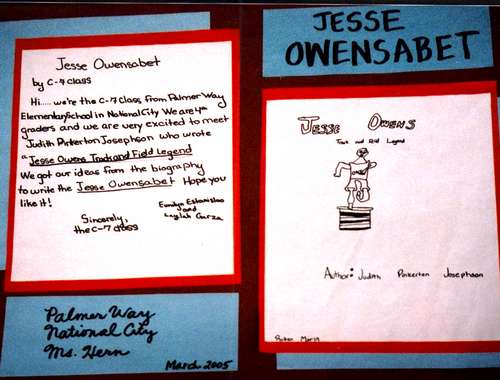 Jesse Owensabet
by C-7 class
Hi..... we're the C-7 Class from Palmer Way
Elementary School in National City We are 4th
graders and we are very excited to meet
Judith Pinkerton Josephson who wrote
"Jesse Owens Track and Field Legend
We got our ideas from the biography
to write the Jesse Owensabet Hope you
like it!
Sincerely,
the C-7 class
and
Garza
Palmer Way
National City
Ms. Hern
March 2005
JESSE
OWENSABET
Jesse Owens
Track and Field Legend
Author: Judith Pinkerton Josephson